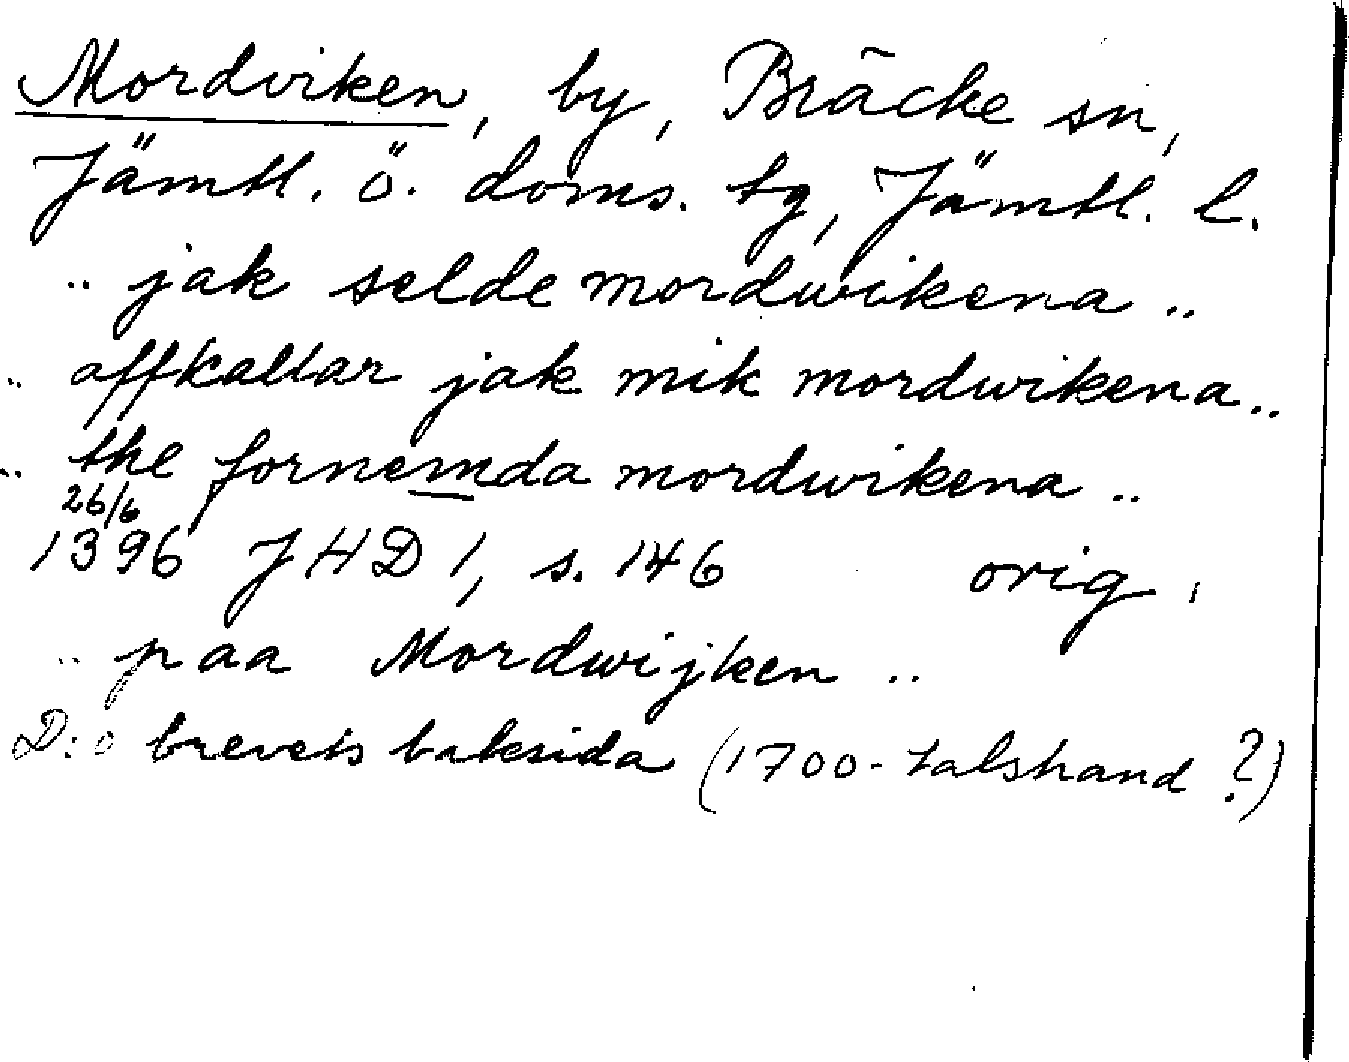 Mordviken, by, Bräcke sn,
Jämtl. ö. doms. tg, Jämtl. l.
.. jak selde mordwikena ..
.. affkallar jak mik mordwikena ..
.. the fornemda mordwikena ..
26/6
1396 JHD 1, s. 146 orig.
.. paa Mordwijken ..
D:o brevets baksida (1700-talshand ?)